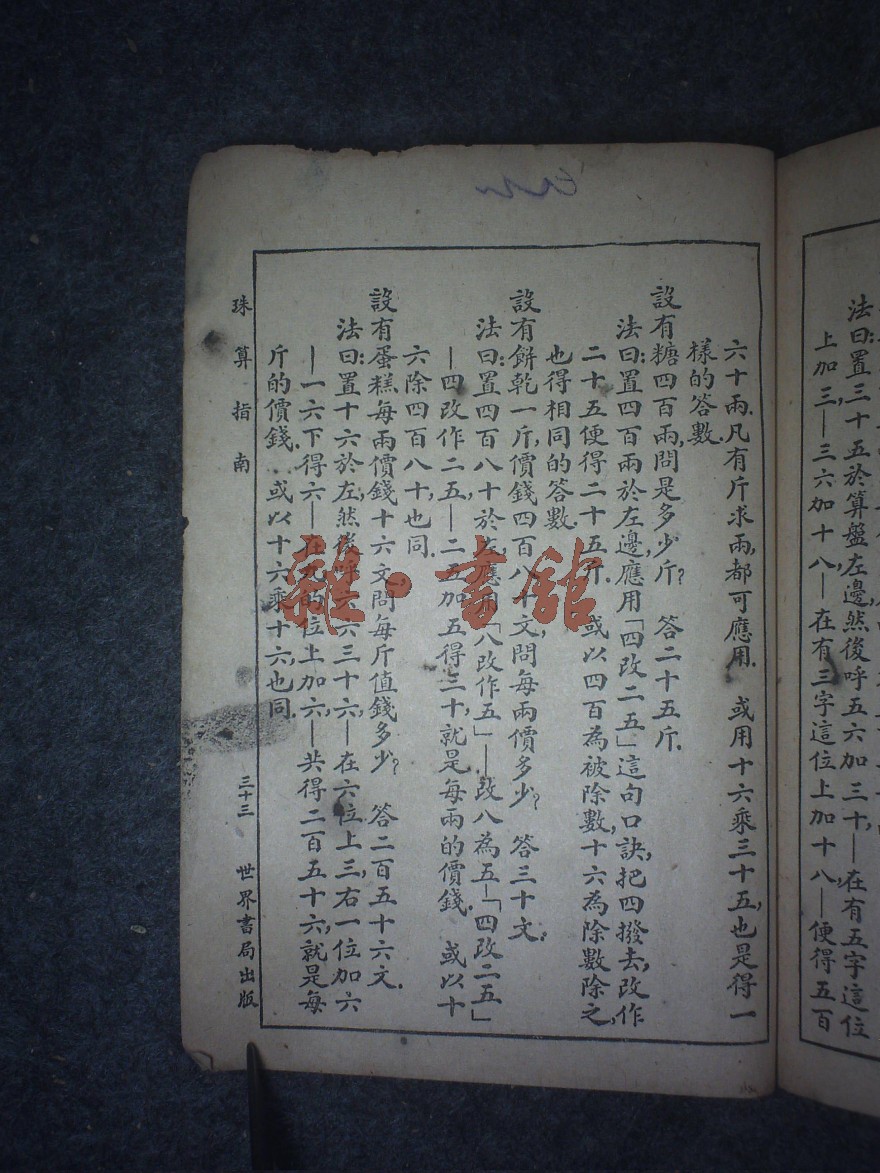 法曰:置三十五於算盤左邊,然後呼五六加三十,—在有五字這位
上加三—三六加十八,—在有三字這位上加十八—便得五百
六十兩.凡有斤求兩,都可應用.或用十六乘三十五,也是得一
樣的答數.
設有糖四百兩,問是多少斤? 答二十五斤.
法曰:置四百兩於左邊,應用「四改二五」這句口訣,把四撥去,改作
二十五便得二十五斤.或以四百為被除數,十六為除數除之,
也得相同的答數.
設有餅乾一斤,價錢四百八十文,問每兩價多少? 答三十文.
法曰:置四百八十於左,應用「八改作五」—改八為五—「四改二五」
—四改作二五,—二五加五得三十,就是每兩的價錢.或以十
六除四百八十,也同.
設有蛋糕每兩價錢十六文,問每斤值錢多少? 答二百五十六文.
法曰:置十六於左,然後呼六六三十六,—在六位上三,右一位加六
—一六下得六—在九的位上加六,—共得二百五十六,就是每
斤的價錢.或以十六乘十六,也同.
珠算指南 三十三 世界書局出版
雜·書館